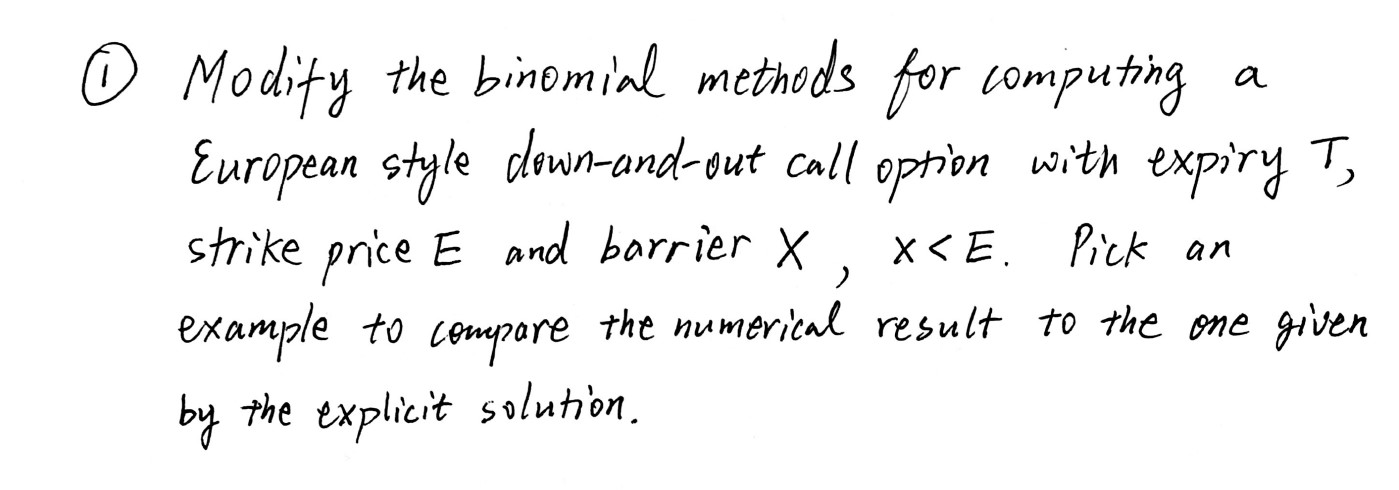 ① Modify the binomial methods for computing a
European style down-and-out call option with expiry T,
strike price E and barrier X, X < E. Pick an
example to compare the numerical result to the one given
by the explicit solution.